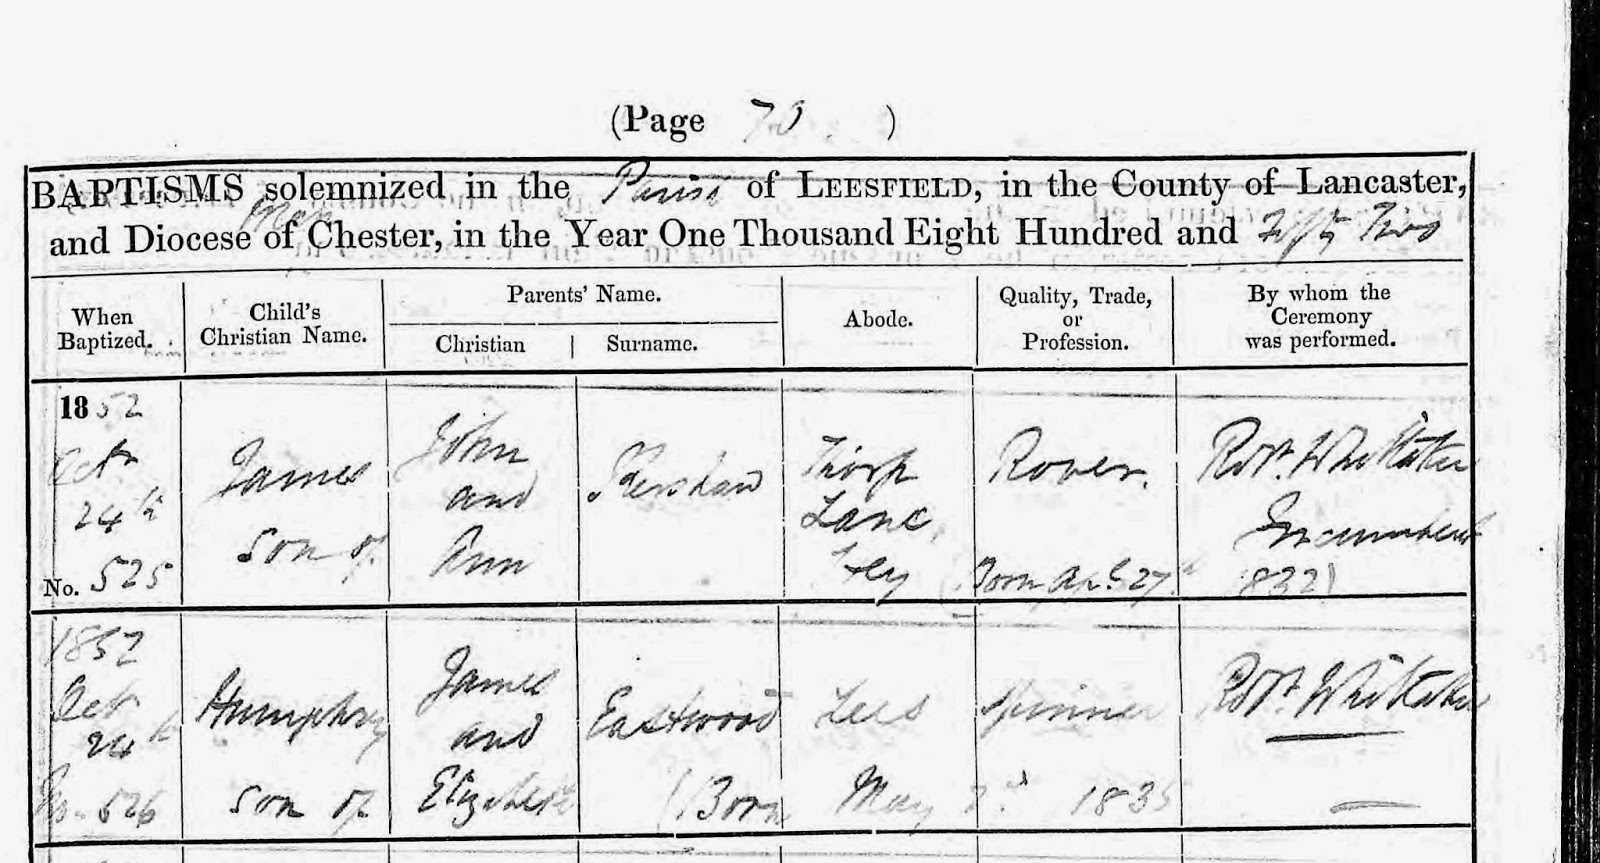 (Page 70. )
BAPTISMS solemnized in the Parish of LEESFIELD, in the County of Lancaster,
and Diocese of Chester, in the Year One Thousand Eight Hundred and Fifty Two
When Baptized.
Child's Christian Name.
Parents' Name.
Christian
Surname.
Abode.
Quality, Trade, or Profession.
By whom the Ceremony was performed.
1852
Octr
24th
No. 525
James
son of
John
and
Ann
Kershaw
Thorp
Lane,
Rover.
Robt. Whittaker
Incumbent
(Born Apl. 27th 1832)
1852
Oct
24th
No. 526
Humphrey
son of
James
and
Elizabeth
Eastwood
Lees
Spinner
Robt. Whittaker
(Born May 1835